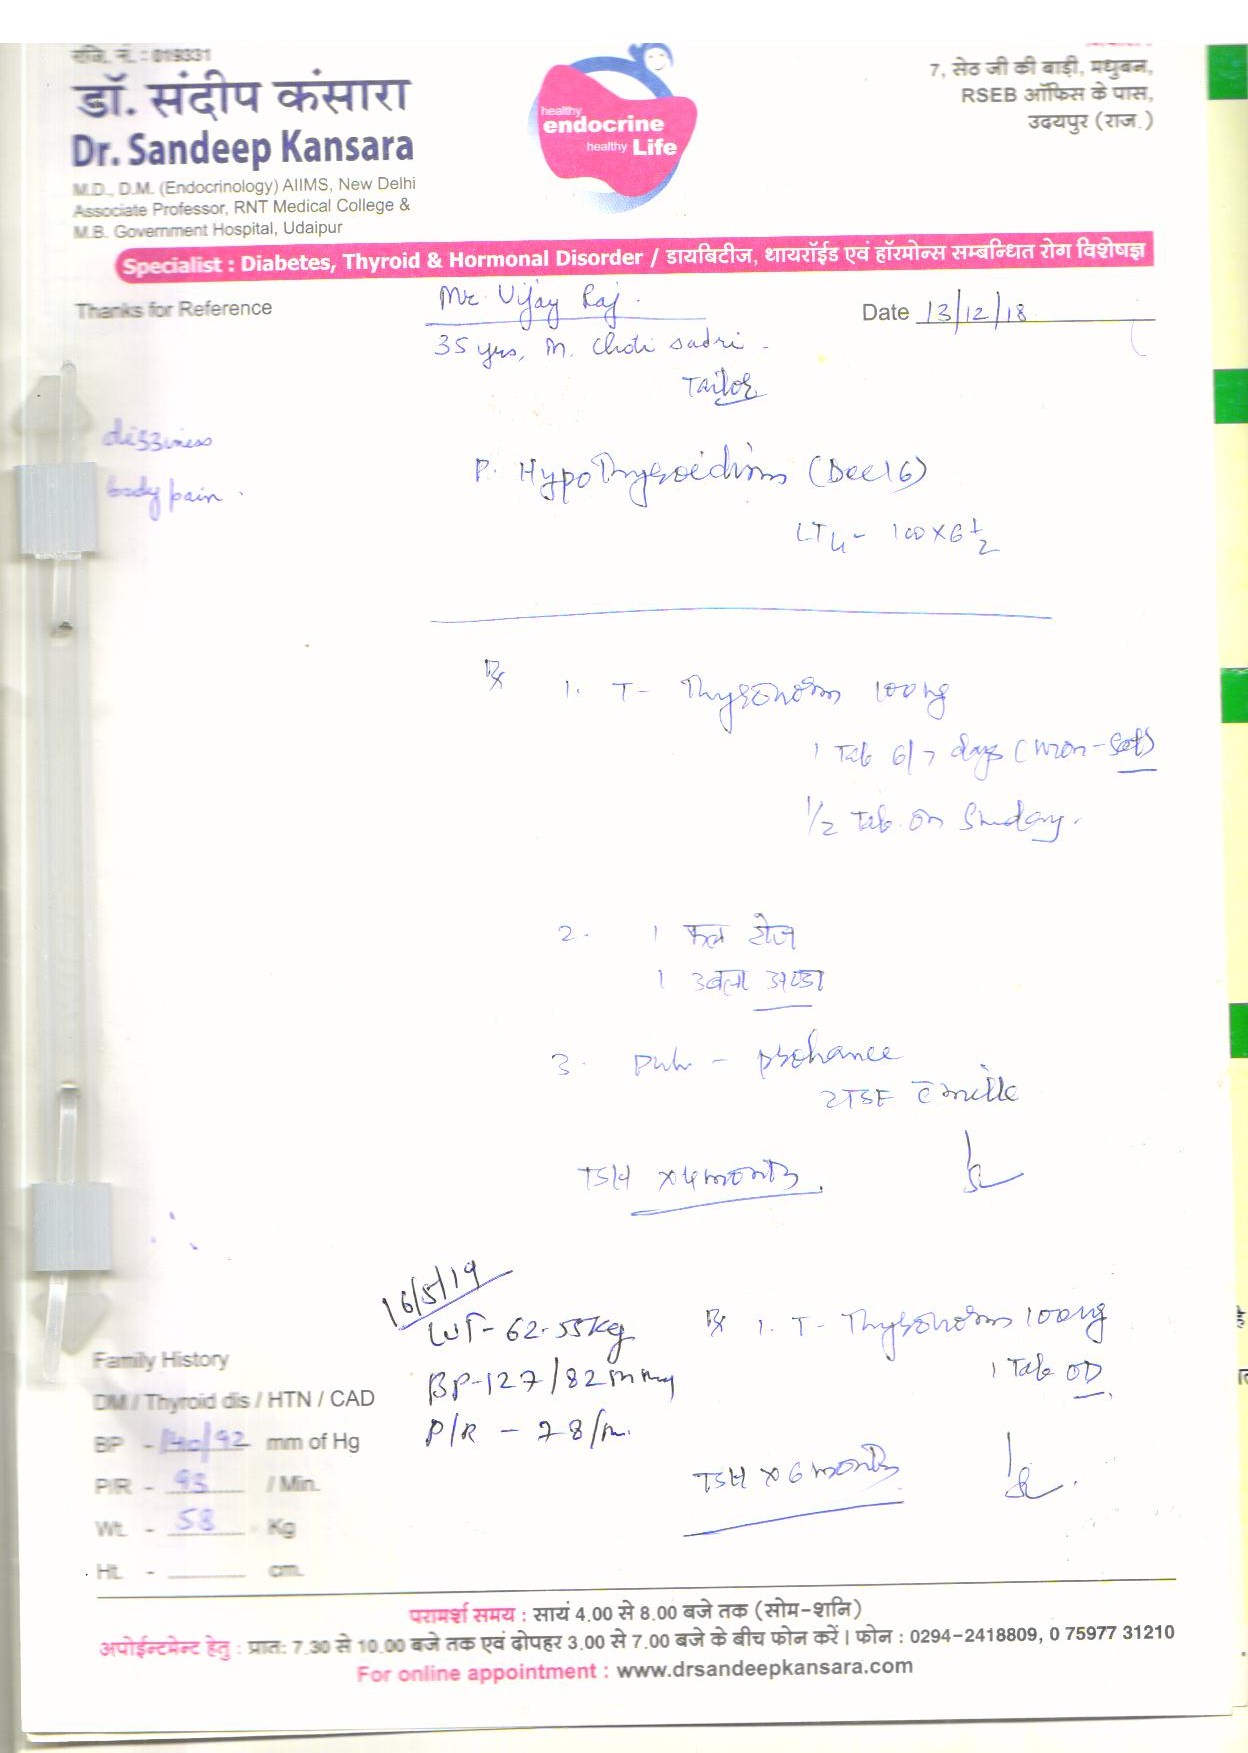 रजि. नं. : 019331
डॉ. संदीप कंसारा
Dr. Sandeep Kansara
M.D., D.M. (Endocrinology) AIIMS, New Delhi
Associate Professor, RNT Medical College &
M.B. Government Hospital, Udaipur
healthy
endocrine
healthy Life
7, सेठ जी की बाड़ी, मधुबन,
RSEB ऑफिस के पास,
उदयपुर (राज.)
Specialist : Diabetes, Thyroid & Hormonal Disorder / डायबिटीज, थायरॉईड एवं हॉरमोन्स सम्बन्धित रोग विशेषज्ञ
Thanks for Reference
Mr. Vijay Raj.
Date 13/12/18
35 yrs, M. Choti sadri.
Tailor
dizziness
body pain.
P. Hypothyroidism (Dec 16)
LT4 - 100x6 1/2
Rx
1. T- Thyronorm 100 mg
1 Tab 6/7 days (Mon-Sat)
1/2 Tab on Sunday.
2. 1 फल रोज
1 उबला अण्डा
3. - prohance
2TSF c̄ milk
TSH x 4 months.
16/5/19
WT- 62.55kg
BP-127/82 mm
P/R - 78/m.
Rx 1. T- Thyronorm 100mg
1 Tab OD
TSH x 6 months
Family History
DM / Thyroid dis / HTN / CAD
BP - 140/92 mm of Hg
P/R - 93 / Min.
Wt. - 58 Kg
Ht. - cm.
परामर्श समय : सायं 4.00 से 8.00 बजे तक (सोम-शनि)
अपोईन्टमेन्ट हेतु : प्रात: 7.30 से 10.00 बजे तक एवं दोपहर 3.00 से 7.00 बजे के बीच फोन करें। फोन : 0294-2418809, 0 75977 31210
For online appointment : www.drsandeepkansara.com